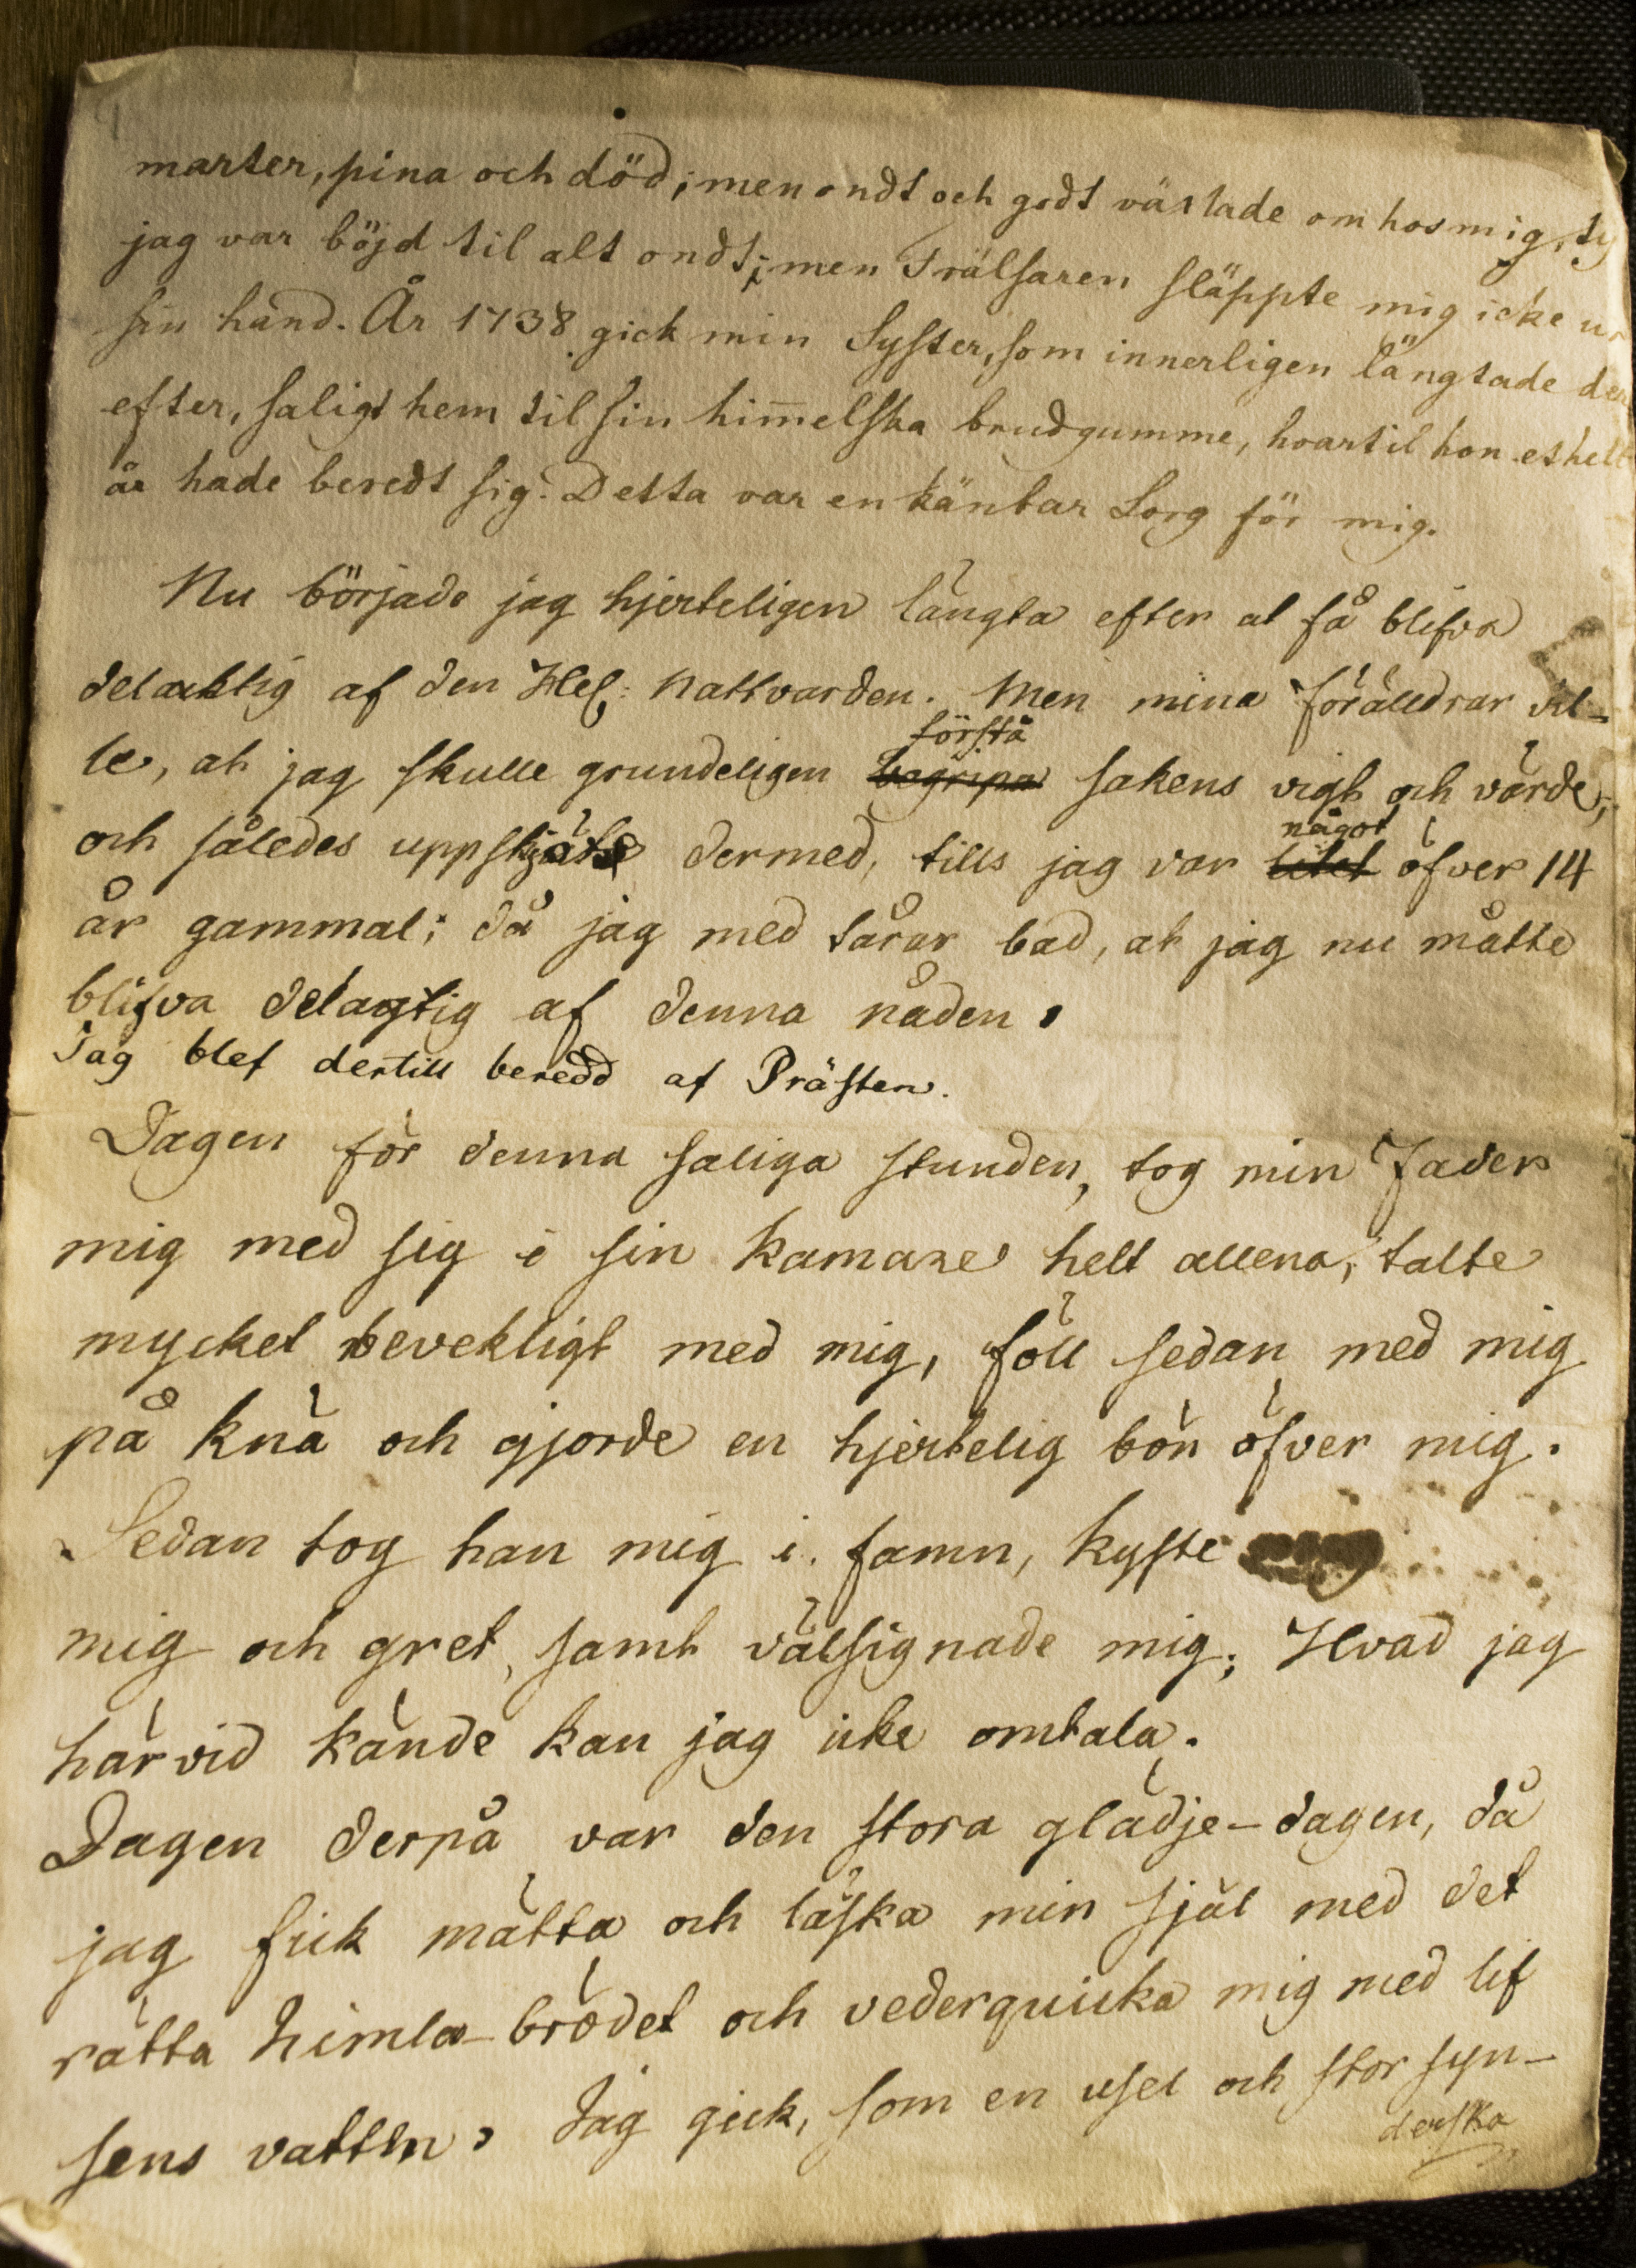 marter, pina och död; men ondt och godt växlade om hos mig, ty
jag var böjd til alt ondt; men Frälsaren släppte mig icke ur
sin hand. År 1738 gick min Syster, som innerligen längtade der
efter, saligt hem til sin him̄elska brudgumme, hvartil hon et helt
år hade beredt sig. Detta var en känbar Sorg för mig.
Nu började jag hjerteligen längta efter at få blifva
delaktig af den Hel: Nattvarden. Men mina föräldrar vil-
le, at jag skulle grundeligen begripa förstå sakens vigt och värde,
och således uppskjöts dermed, tills jag var litet något öfver 14
år gammal; då jag med tårar bad, at jag nu måtte
blifva delagtig af denna nåden.
Jag blef dertill beredd af Prästen.
Dagen för denna saliga stunden, tog min Fader
mig med sig i sin kamare helt allena, talte
mycket bevekligt med mig, föll sedan med mig
på knä och gjorde en hjertelig bön öfver mig.
Sedan tog han mig i famn, kyste
mig och gret, samt välsignade mig; Hvad jag
härvid kände kan jag icke omtala.
Dagen derpå var den stora glädje-dagen, då
jag fick mätta och läska min själ med det
rätta himla-brödet och vederquicka mig med lif
sens vatten. Jag gick, som en usel och stor syn-
derska